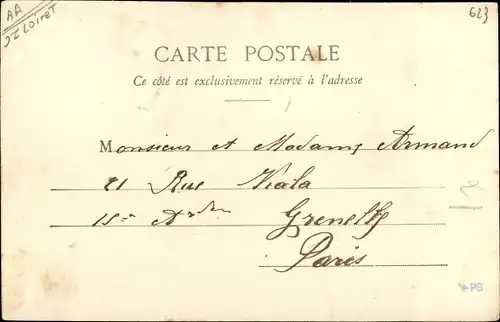 AA
LOIRET
623
CARTE POSTALE
Ce côté est exclusivement réservé à l'adresse
Monsieur et Madame Armand
21 Rue Viala
15e Ardnt
Grenelle
Paris
PB